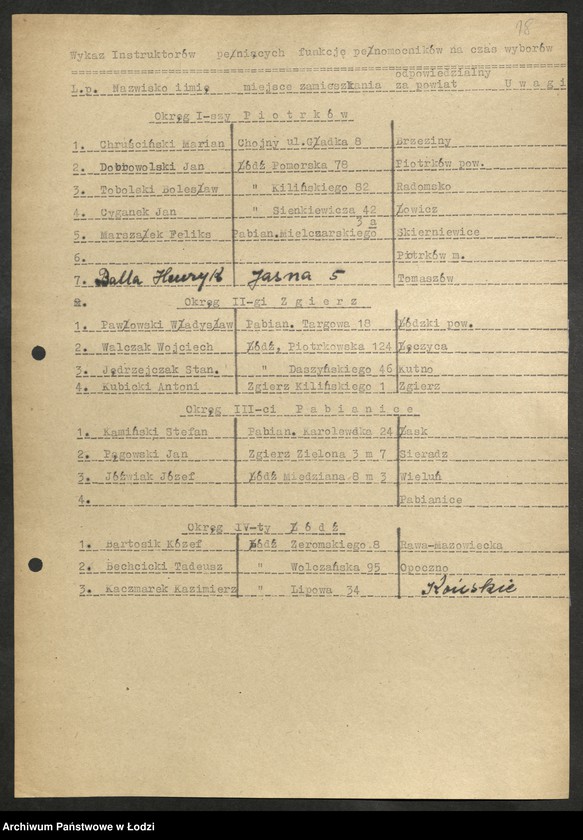 18
Wykaz Instruktorów pełniących funkcję pełnomocników na czas wyborów
odpowiedzialny
L.p. Nazwisko i imię miejsce zamieszkania za powiat U w a g i
Okręg I-szy P i o t r k ó w
1. Chruściński Marian Chojny ul.Gładka 8 Brzeziny
2. Dobrowolski Jan Łódź Pomorska 78 Piotrków pow.
3. Tobolski Bolesław " Kilińskiego 82 Radomsko
4. Cyganek Jan " Sienkiewicza 42 Łowicz
3 a
5. Marszałek Feliks Pabian.Mielczarskiego Skierniewice
6. Piotrków m.
7. Balla Henryk Jasna 5 Tomaszów
8. Okręg II-gi Z g i e r z
1. Pawłowski Władysław Pabian. Targowa 18 Łódzki pow.
2. Walczak Wojciech Łódź, Piotrkowska 124 Łęczyca
3. Jędrzejczak Stan. " Daszyńskiego 46 Kutno
4. Kubicki Antoni Zgierz Kilińskiego 1 Zgierz
Okręg III-ci P a b i a n i c e
1. Kamiński Stefan Pabian. Karolewska 24 Łask
2. Pągowski Jan Zgierz Zielona 3 m 7 Sieradz
3. Jóźwiak Józef Łódź Miedziana 8 m 3 Wieluń
4. Pabianice
Okręg IV-ty Ł ó d ź
1. Bartosik Józef Łódź Żeromskiego 8 Rawa-Mazowiecka
2. Bechcicki Tadeusz " Wolczańska 95 Opoczno
3. Kaczmarek Kazimierz " Lipowa 34 Końskie
Archiwum Państwowe w Łodzi